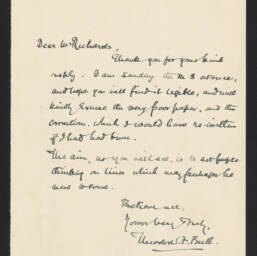 Dear Mr Richards,
Thank you for your kind
reply. I am sending the MS at once,
and hope you will find it legible, and will
kindly excuse the very poor paper, and the
corrections, which I would have re-written
if I had had time.
The aim, as you will see, is to set people
thinking on lines which may perhaps be
new to some.
Yours very truly,
Theodore A. Bell.